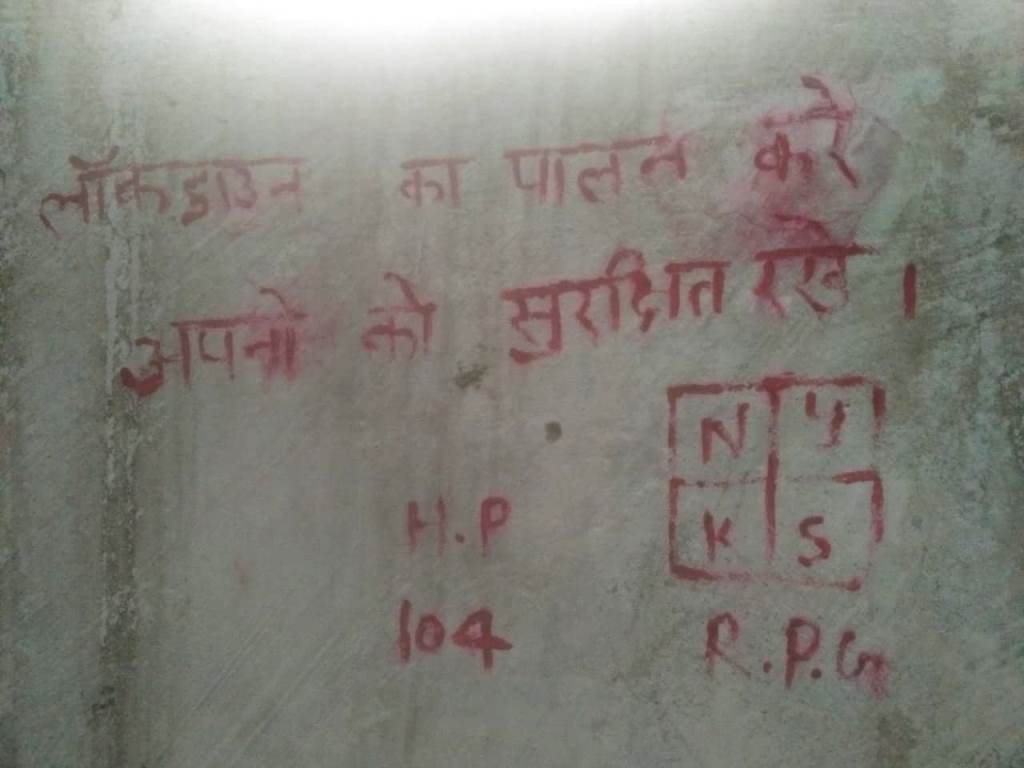 लॉकडाउन का पालन करे
अपनो को सुरक्षित रखे ।
N Y
K S
H.P
104
R.P.G